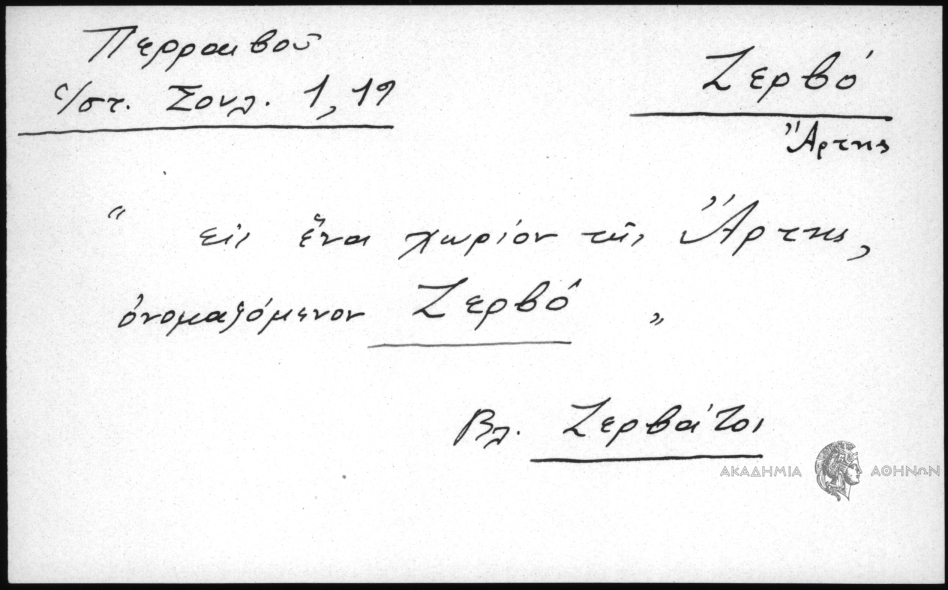 Περραιβοῦ
ἱ/στ. Σουλ. 1, 19
Ζερβό
Ἄρτης
“ εἰς ἕνα χωρίον τῆς Ἄρτης,
ὀνομαζόμενον Ζερβό „
Βλ. Ζερβάτοι
ΑΚΑΔΗΜΙΑ ΑΘΗΝΩΝ